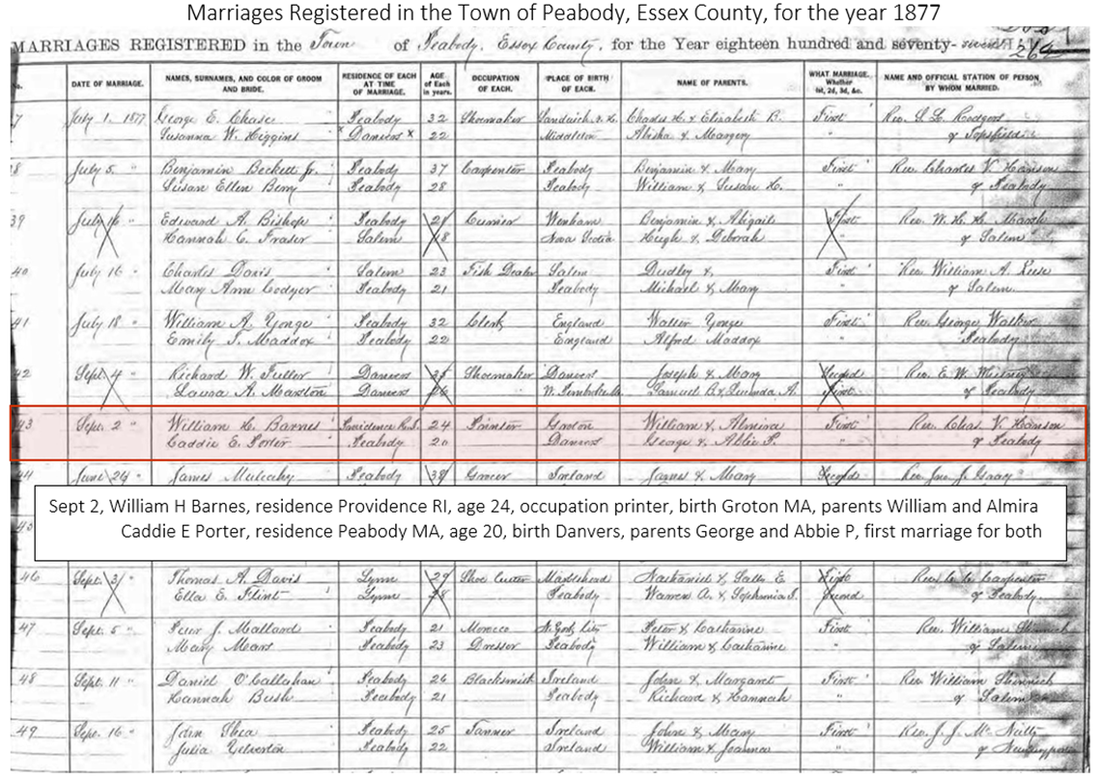 Marriages Registered in the Town of Peabody, Essex County, for the year 1877
MARRIAGES REGISTERED in the Town of Peabody, Essex County, for the Year eighteen hundred and seventy-seven 264
No. DATE OF MARRIAGE. NAMES, SURNAMES, AND COLOR OF GROOM AND BRIDE. RESIDENCE OF EACH AT TIME OF MARRIAGE. AGE of Each in years. OCCUPATION OF EACH. PLACE OF BIRTH OF EACH. NAME OF PARENTS. WHAT MARRIAGE. Whether 1st, 2d, 3d, &c. NAME AND OFFICIAL STATION OF PERSON BY WHOM MARRIED.
7 July 1. 1877 George E. Chase Peabody 32 Shoemaker Sandwich N. H. Charles H. & Elizabeth B. First Rev.
Susanna W. Higgins x Danvers x 22 Middleton & Margery " of Topsfield
8 July 5 " Benjamin Beckett Jr. Peabody 37 Carpenter Peabody Benjamin & Mary First Rev. Charles V. Hanson
Susan Ellen Berry Peabody 28 Peabody William & Susan H. " of Peabody
39 July 16 " Edward A. Bishop Peabody Currier Wenham Benjamin & Abigail First Rev. W. H. H. Marsh
Hannah C. Fraser Salem Nova Scotia Hugh & Deborah " of Salem
40 July 16 " Charles Davis Salem 23 Fish Dealer Salem Dudley &, First Rev. William A.
Mary Ann Peabody 21 Peabody Michael & Mary " of Salem.
41 July 18 " William A. Yonge Peabody 32 Clerk England Walter Yonge First Rev. George Walker
Emily T. Maddox Peabody 22 England Alfred Maddox " Peabody
42 Sept. 4 " Richard W. Fuller Danvers Shoemaker Danvers Joseph & Mary Second Rev. E. W.
Laura A. Marston Danvers N. Pembroke Samuel B. & A. First of Peabody
43 Sept. 2 " William H. Barnes Providence R.I. 24 Printer Groton William & Almira First Rev. Chas. V. Hanson
Caddie E. Porter Peabody 20 Danvers George & Abbie P. " of Peabody
44 June 24 " James Mulcahy Peabody Grocer Ireland James & Mary Second Rev. Jno. J. Gray
Sept 2, William H Barnes, residence Providence RI, age 24, occupation printer, birth Groton MA, parents William and Almira
Caddie E Porter, residence Peabody MA, age 20, birth Danvers, parents George and Abbie P, first marriage for both
45
46 Sept. 3 " Thomas A. Davis Lynn Shoe Cutter Marblehead Nathaniel & E First Rev. Carpenter
Ella E. Flint Lynn Peabody Warren A. & Sophronia of Peabody.
47 Sept. 5 " Peter J. Mallard Peabody 21 Morocco N. York City Peter & Catharine First Rev. William
Mary Mars Peabody 23 Dresser Peabody William & Catharine of Salem
48 Sept. 11 " Daniel O'Callahan Peabody 26 Blacksmith Ireland John & Margaret First Rev William
Hannah Bush Peabody 21 Peabody Richard & Hannah " of Salem
49 Sept. 16 " John Shea Peabody 25 Tanner Ireland John & Mary First Rev. J. J.
Julia Yelverton Peabody 22 Ireland William & Joanna " of